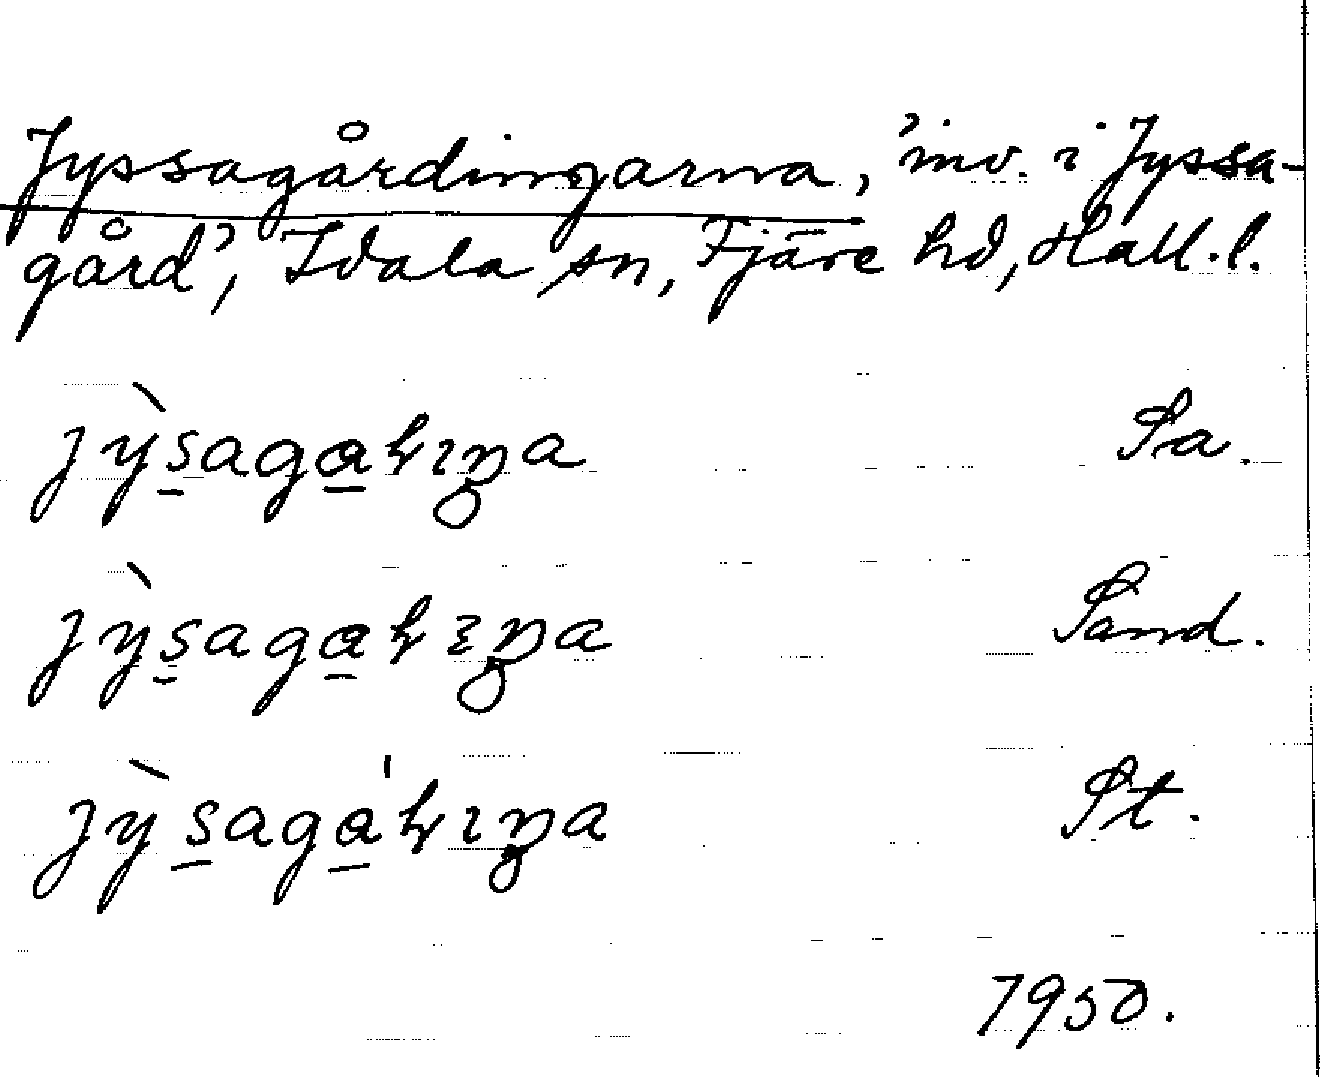 Jyssagårdingarna, 'inv. i Jyssa-
gård', Idala sn, Fjäre hd, Hall. l.
jỳs̠aga̠ꞎıŋa Sa.
jỳs̠aga̠ꞎɛŋa Sand.
jỳs̠agá̠ꞎıŋa St.
1950.